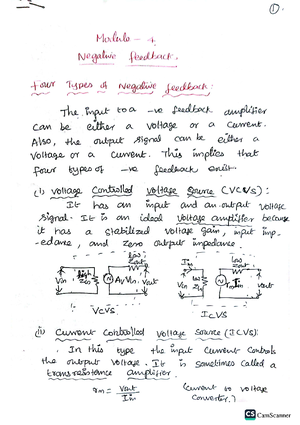 ①.
Module - 4
Negative feedback.
Four Types of Negative feedback:
The input to a -ve feedback amplifier
can be either a voltage or a current.
Also, the output signal can be either a
voltage or a current. This implies that
four types of -ve feedback exist.
(i) Voltage Controlled Voltage source (VCVS):
It has an input and an output voltage
signal. It is an ideal voltage amplifier because
it has a stabilized voltage gain, input imp-
-edance, and zero output impedance.
high Zin low Zout
Vin Vin Av Vin Vout
Iin low Zin low Zout
Vin rm Iin Vout
VCVS ICVS
(ii) Current Controlled Voltage source (ICVS):
In this type the input current controls
the output voltage. It is sometimes called a
transresistance amplifier.
rm = Vout / Iin (current to voltage
converter.)
CS CamScanner